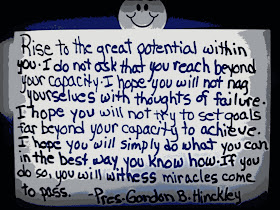 Rise to the great potential within
you. I do not ask that you reach beyond
your capacity. I hope you will not nag
yourselves with thoughts of failure.
I hope you will not try to set goals
far beyond your capacity to achieve.
I hope you will simply do what you can
in the best way you know how. If you
do so, you will witness miracles come
to pass. -Pres. Gordon B. Hinckley